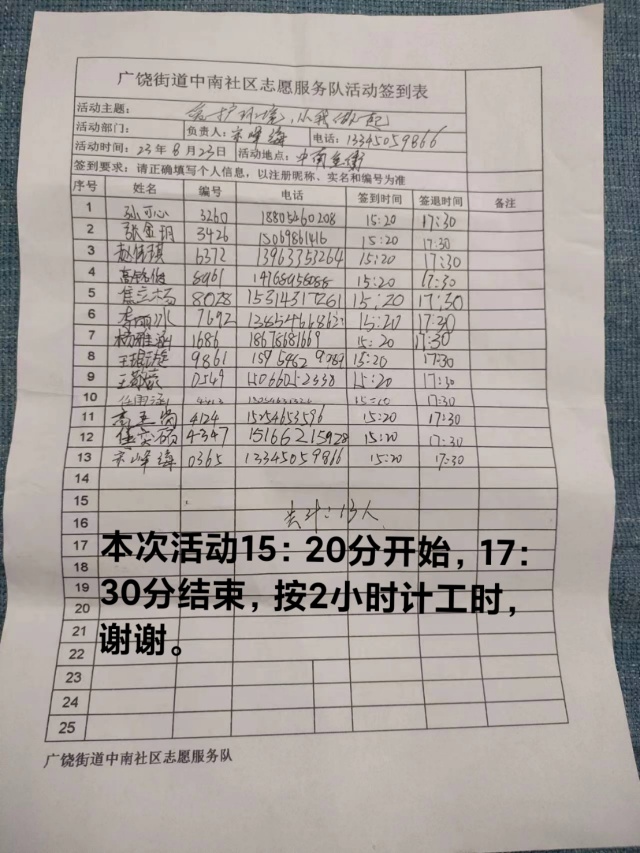 广饶街道中南社区志愿服务队活动签到表
活动主题： 爱护环境，从我做起
活动部门： 负责人：宋峰海 电话：13345059866
活动时间：23年8月23日 活动地点：中南
签到要求：请正确填写个人信息，以注册昵称、实名和编号为准
序号 姓名 编号 电话 签到时间 签退时间 备注
1 孙可心 3260 18805460208 15:20 17:30
2 张金玥 3426 15069861416 15:20 17:30
3 6372 13963353264 15:20 17:30
4 8961 14768958088 15:20 17:30
5 8028 15314317261 15:20 17:30
6 李丽冰 7692 15:20 17:30
7 1686 18678681669 15:20 17:30
8 9861 15:20 17:30
9 0549 15066052338 15:20 17:30
10 17:30
11 4124 15254653596 15:20 17:30
12 4347 15166215928 15:20 17:30
13 宋峰海 0365 13345059866 15:20 17:30
14
15
16 共计：13人
17
18
19
20
21
22
23
24
25
本次活动15：20分开始，17：
30分结束，按2小时计工时，
谢谢。
广饶街道中南社区志愿服务队